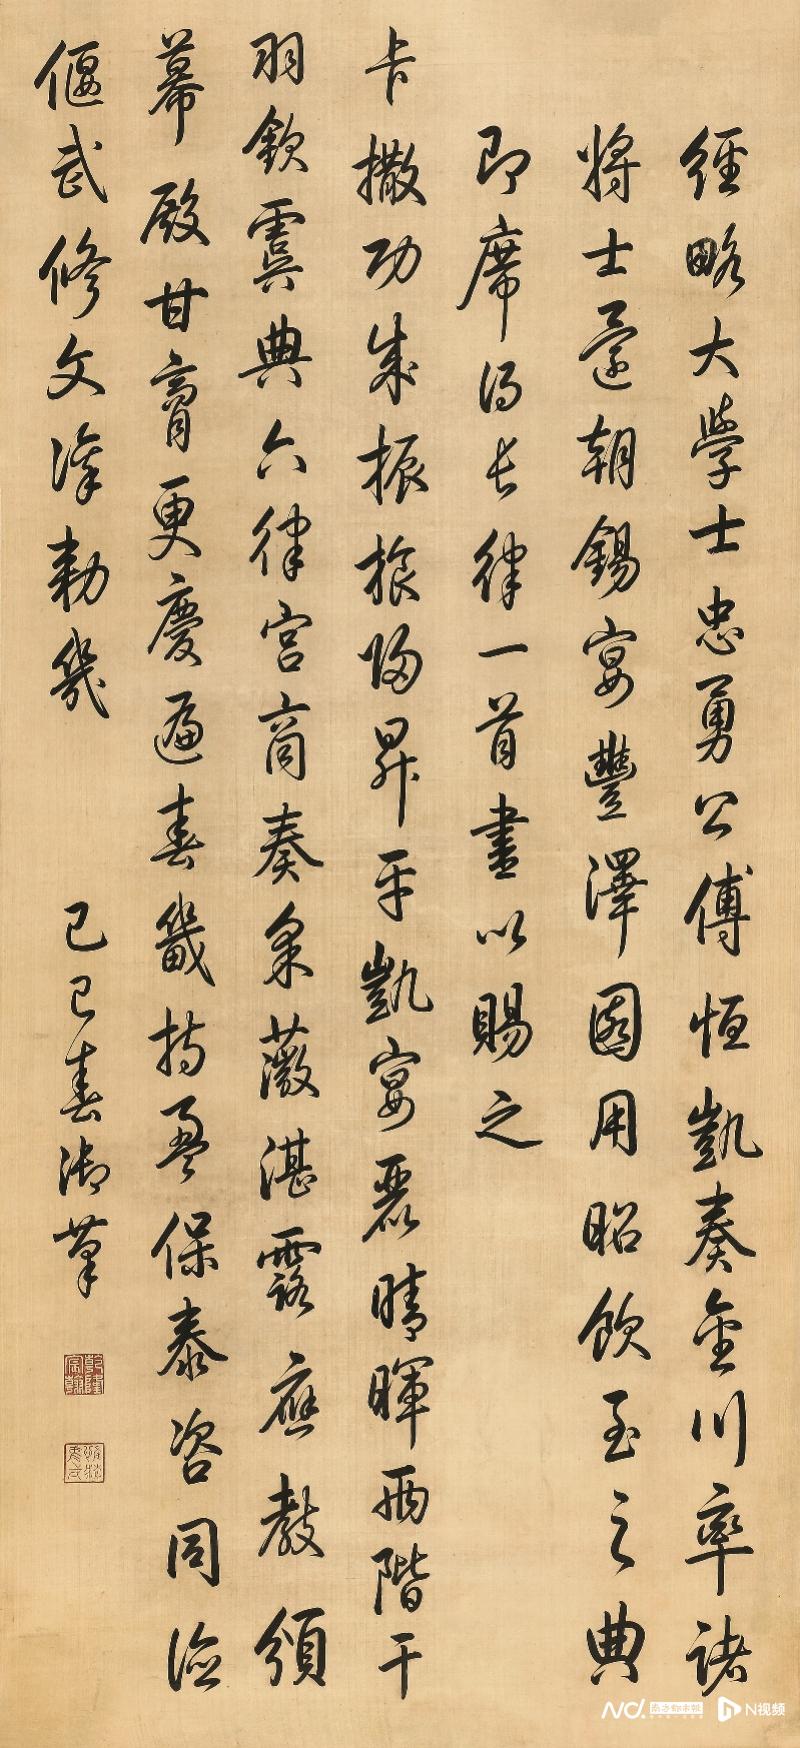 經略大學士忠勇公傅恒凱奏金川率諸
將士還朝錫宴豐澤園用昭飲至之典
即席得長律一首書以賜之
卡撒功成振旅歸昇平凱宴麗晴暉兩階干
羽欽虞典六律宮商奏采薇湛露應教頒
幕殿甘膏更慶遍春畿持盈保泰咨同儉
偃武修文凜勅幾
己巳春御筆
乾隆宸翰
南方都市报
N视频